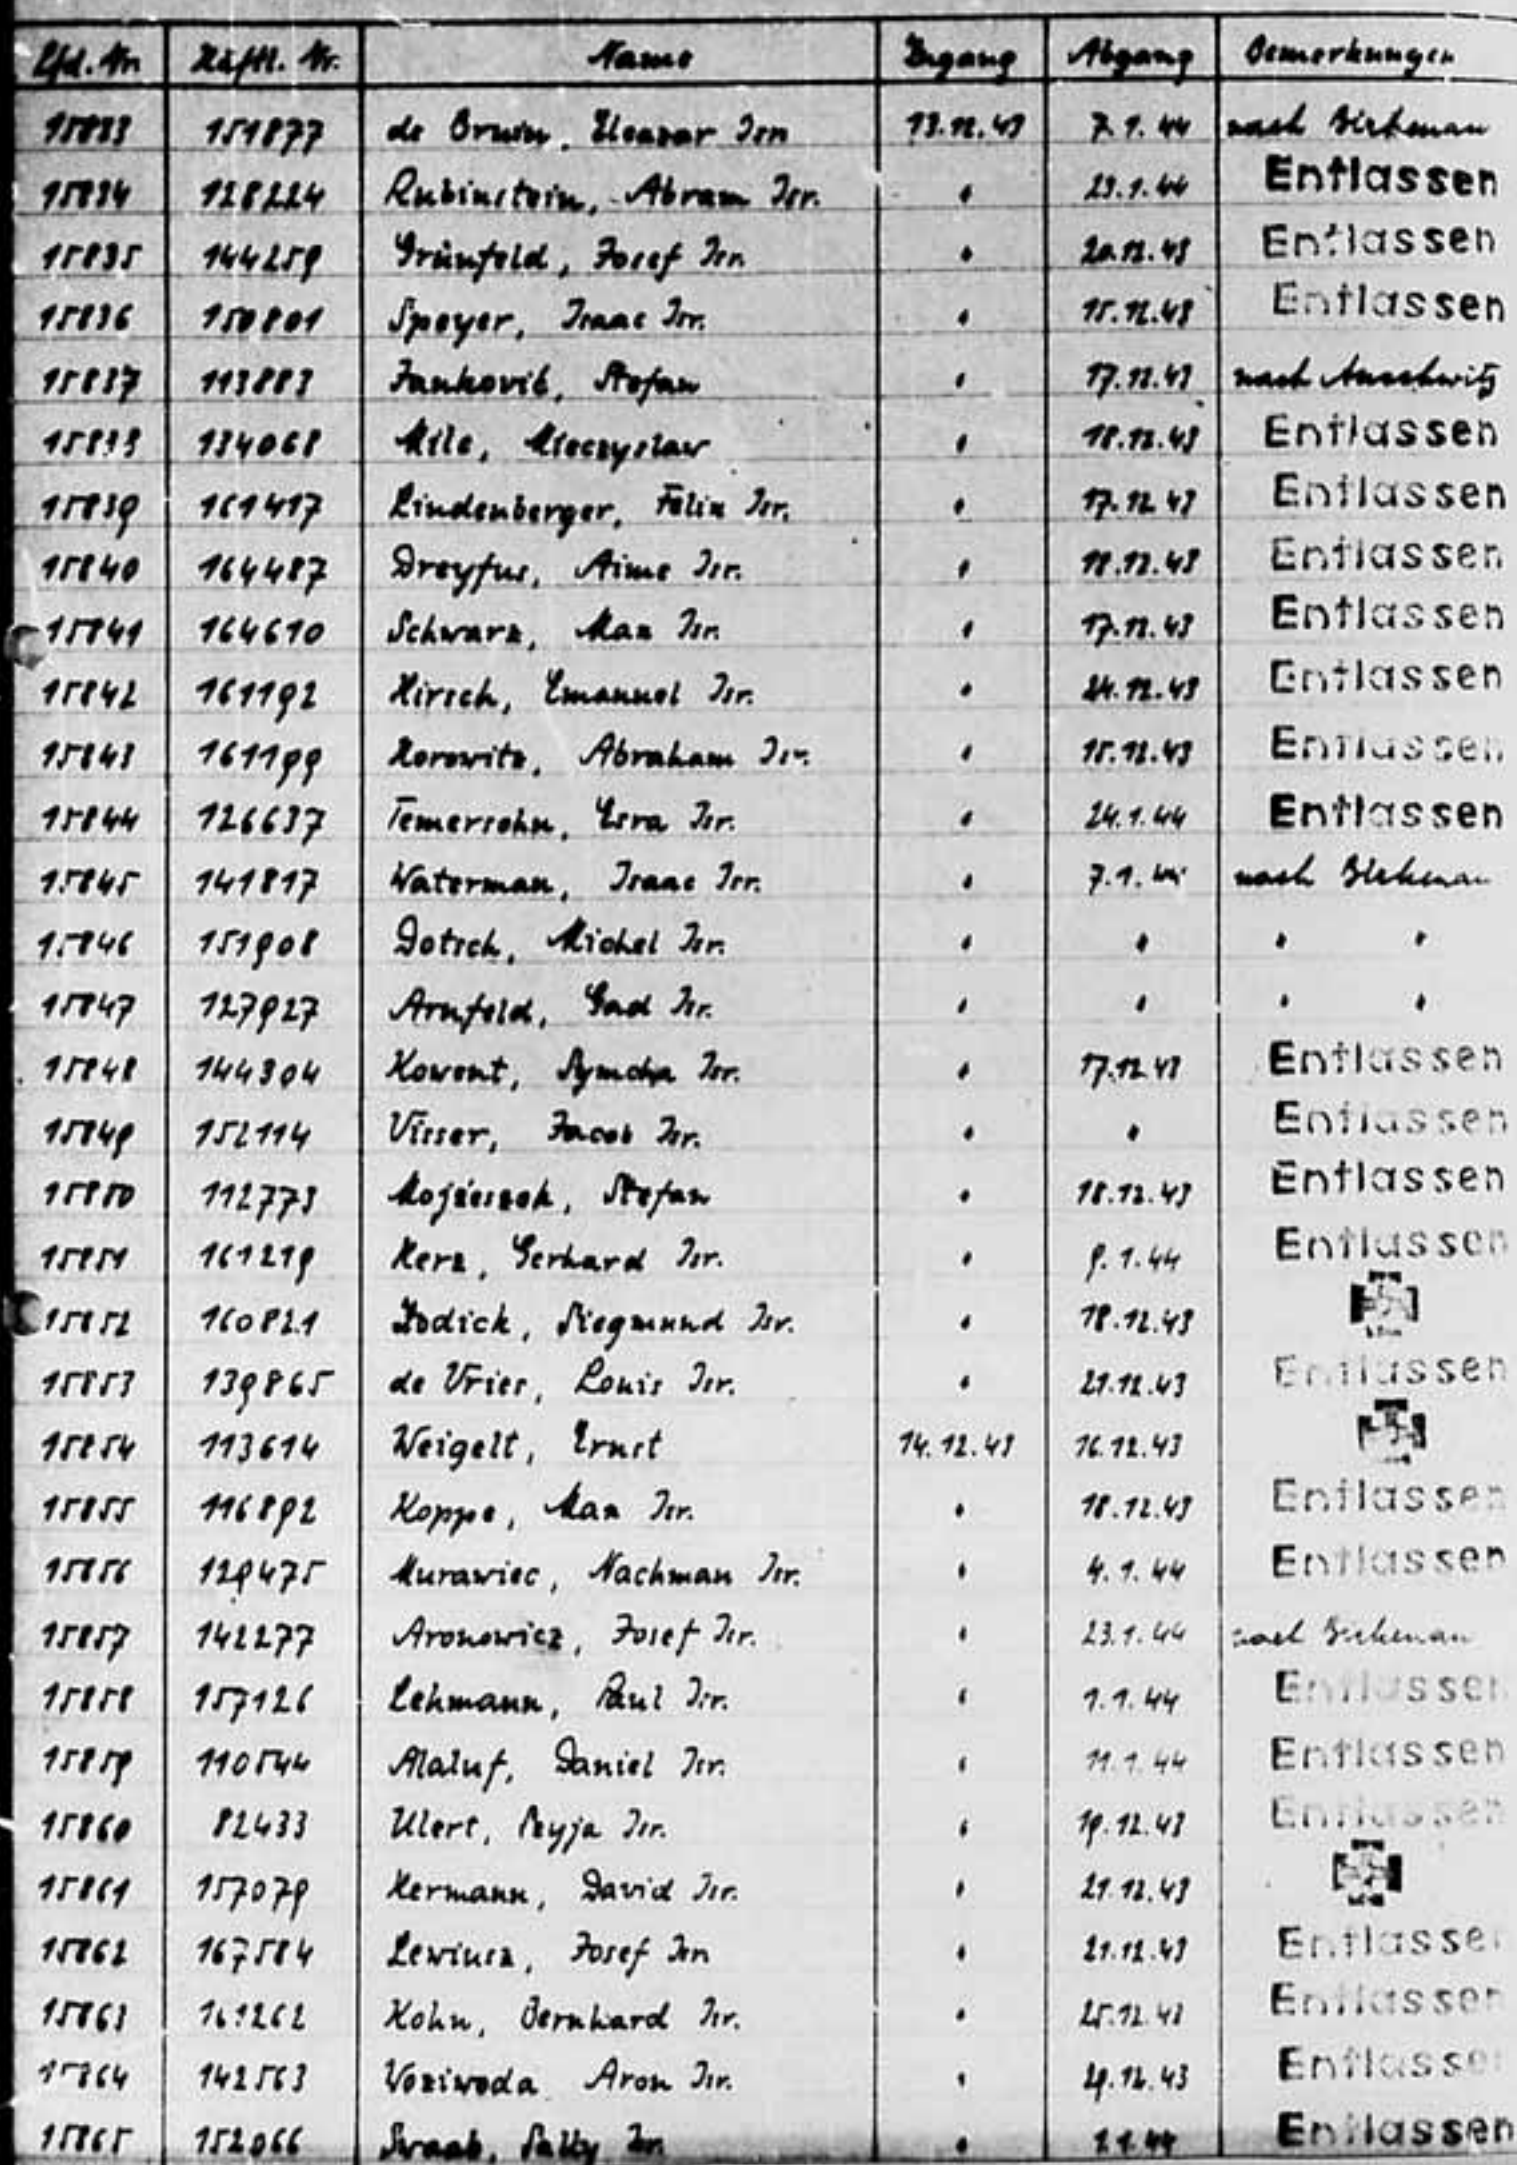 Lfd. Nr. Häftl. Nr. Name Zugang Abgang Bemerkungen
15833 151877 de Bruin, Eleazar Isr. 13.12.43 7.1.44 nach Birkenau
15834 128224 Rubinstein, Abram Isr. " 23.1.44 Entlassen
15835 144259 Grünfeld, Josef Isr. " 20.12.43 Entlassen
15836 150801 Speyer, Isaac Isr. " 15.12.43 Entlassen
15837 113883 Jankovič, Stefan " 17.12.43 nach Auschwitz
15838 134068 Mile, Mieczyslaw " 18.12.43 Entlassen
15839 161417 Lindenberger, Felix Isr. " 17.12.43 Entlassen
15840 164487 Dreyfus, Aime Isr. " 18.12.43 Entlassen
15841 164610 Schwarz, Max Isr. " 17.12.43 Entlassen
15842 161192 Hirsch, Emanuel Isr. " 24.12.43 Entlassen
15843 161199 Horowitz, Abraham Isr. " 15.12.43 Entlassen
15844 126637 Temersohn, Esra Isr. " 24.1.44 Entlassen
15845 141817 Waterman, Isaac Isr. " 7.1.44 nach Birkenau
15846 151908 Dotsch, Michel Isr. " " " "
15847 127927 Arnfeld, Gad Isr. " " " "
15848 144304 Kowent, Symcha Isr. " 17.12.43 Entlassen
15849 152114 Visser, Jacob Isr. " " Entlassen
15850 112773 Stefan " 18.12.43 Entlassen
15851 161219 Herz, Gerhard Isr. " 9.1.44 Entlassen
15852 160821 Dodick, Siegmund Isr. " 18.12.43
15853 139865 de Vries, Louis Isr. " 21.12.43 Entlassen
15854 113614 Weigelt, Ernst 14.12.43 16.12.43
15855 116892 Koppe, Max Isr. " 18.12.43 Entlassen
15856 129475 Murawiec, Nachman Isr. " 4.1.44 Entlassen
15857 142277 Aronowicz, Josef Isr. " 23.1.44 nach Birkenau
15858 157126 Lehmann, Paul Isr. " 1.1.44 Entlassen
15859 110544 Alaluf, Daniel Isr. " 11.1.44 Entlassen
15860 82433 Ulert, Isr. " 19.12.43 Entlassen
15861 157079 Hermann, David Isr. " 21.12.43
15862 167584 Lewiusz, Josef Isr. " 21.12.43 Entlassen
15863 161262 Kohn, Bernhard Isr. " 25.12.43 Entlassen
15864 142563 Woziwoda Aron Isr. " 29.12.43 Entlassen
15865 152066 Swaab, Sally Isr. " 1.1.44 Entlassen